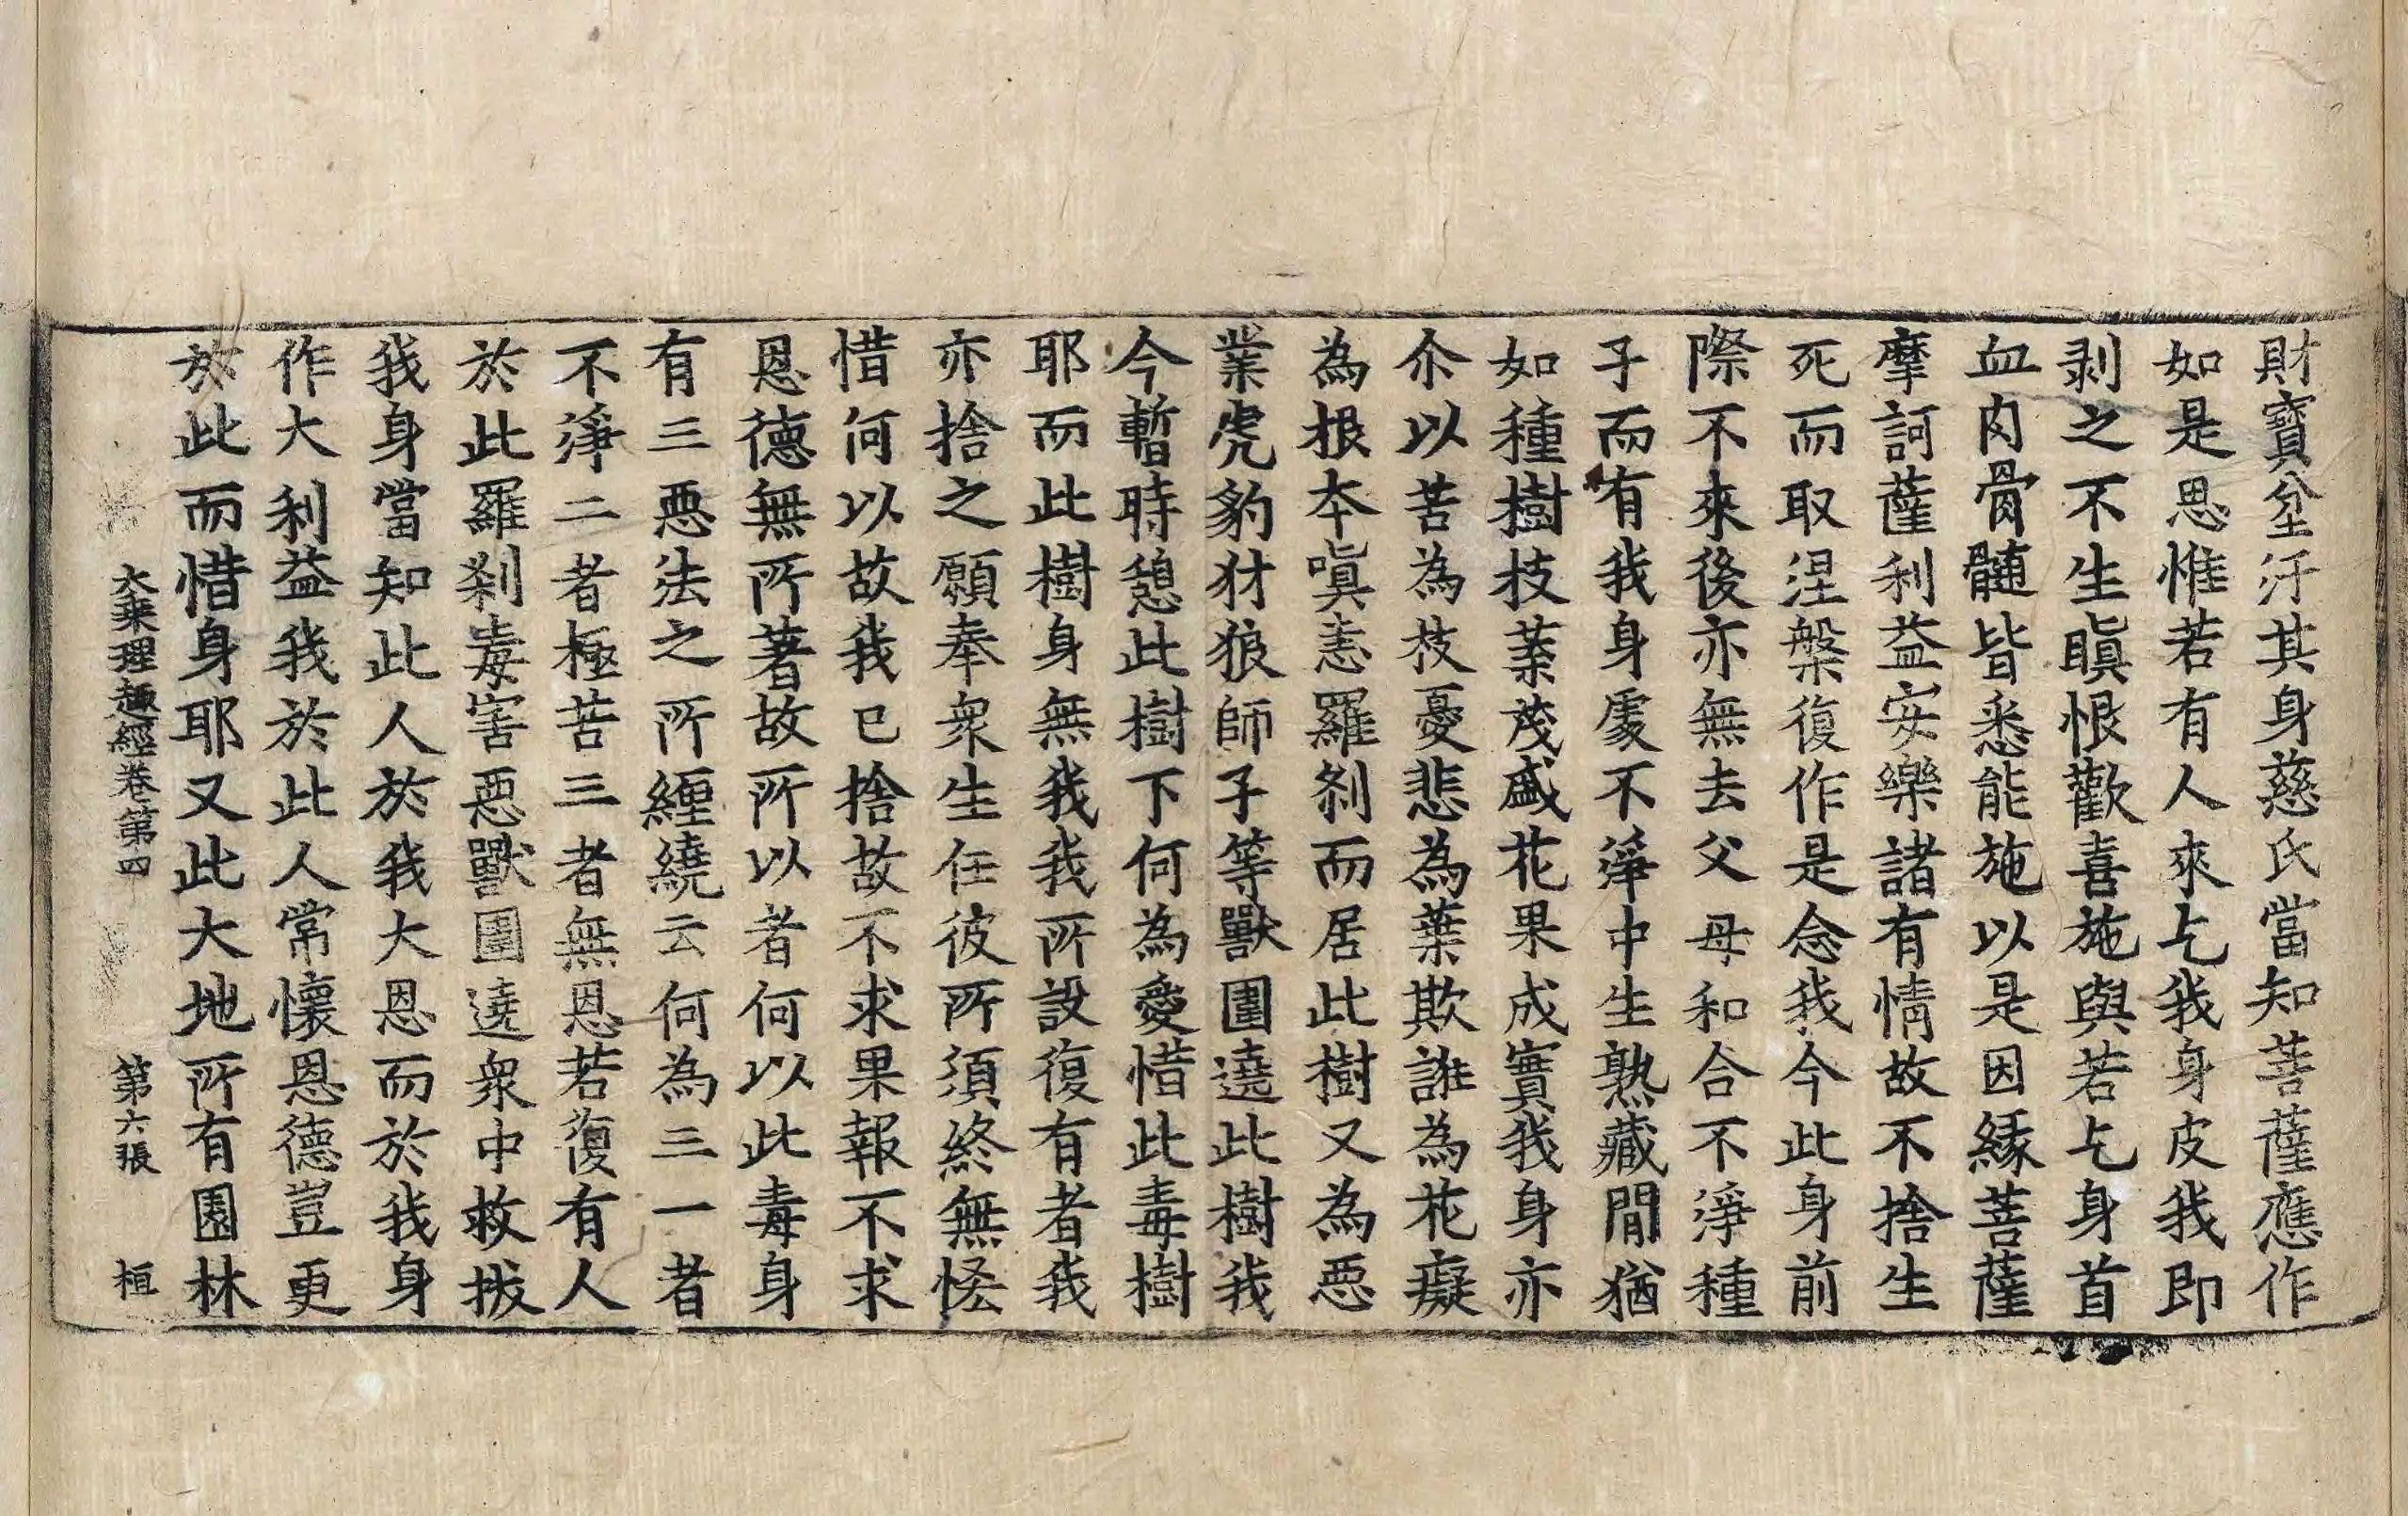 財寶坌汙其身慈氏當知菩薩應作
如是思惟若有人來乞我身皮我即
剥之不生瞋恨歡喜施與若乞身首
血肉骨髓皆悉能施以是因縁菩薩
摩訶薩利益安樂諸有情故不捨生
死而取涅槃復作是念我今此身前
際不來後亦無去父母和合不淨種
子而有我身處不淨中生熟藏閒猶
如種樹枝葉茂盛花果成實我身亦
尒以苦為枝憂悲為葉欺誑為花癡
為根本嗔恚羅刹而居此樹又為惡
業虎豹犲狼師子等獸圍遶此樹我
今暫時憩此樹下何為愛惜此毒樹
耶而此樹身無我我所設復有者我
亦捨之願奉衆生任彼所須終無恡
惜何以故我已捨故不求果報不求
恩德無所著故所以者何以此毒身
有三惡法之所纒繞云何為三一者
不淨二者極苦三者無恩若復有人
於此羅刹毒害惡獸圍遶衆中救拔
我身當知此人於我大恩而於我身
作大利益我於此人常懷恩德豈更
於此而惜身耶又此大地所有園林
大乘理趣經卷第四 第六張 桓